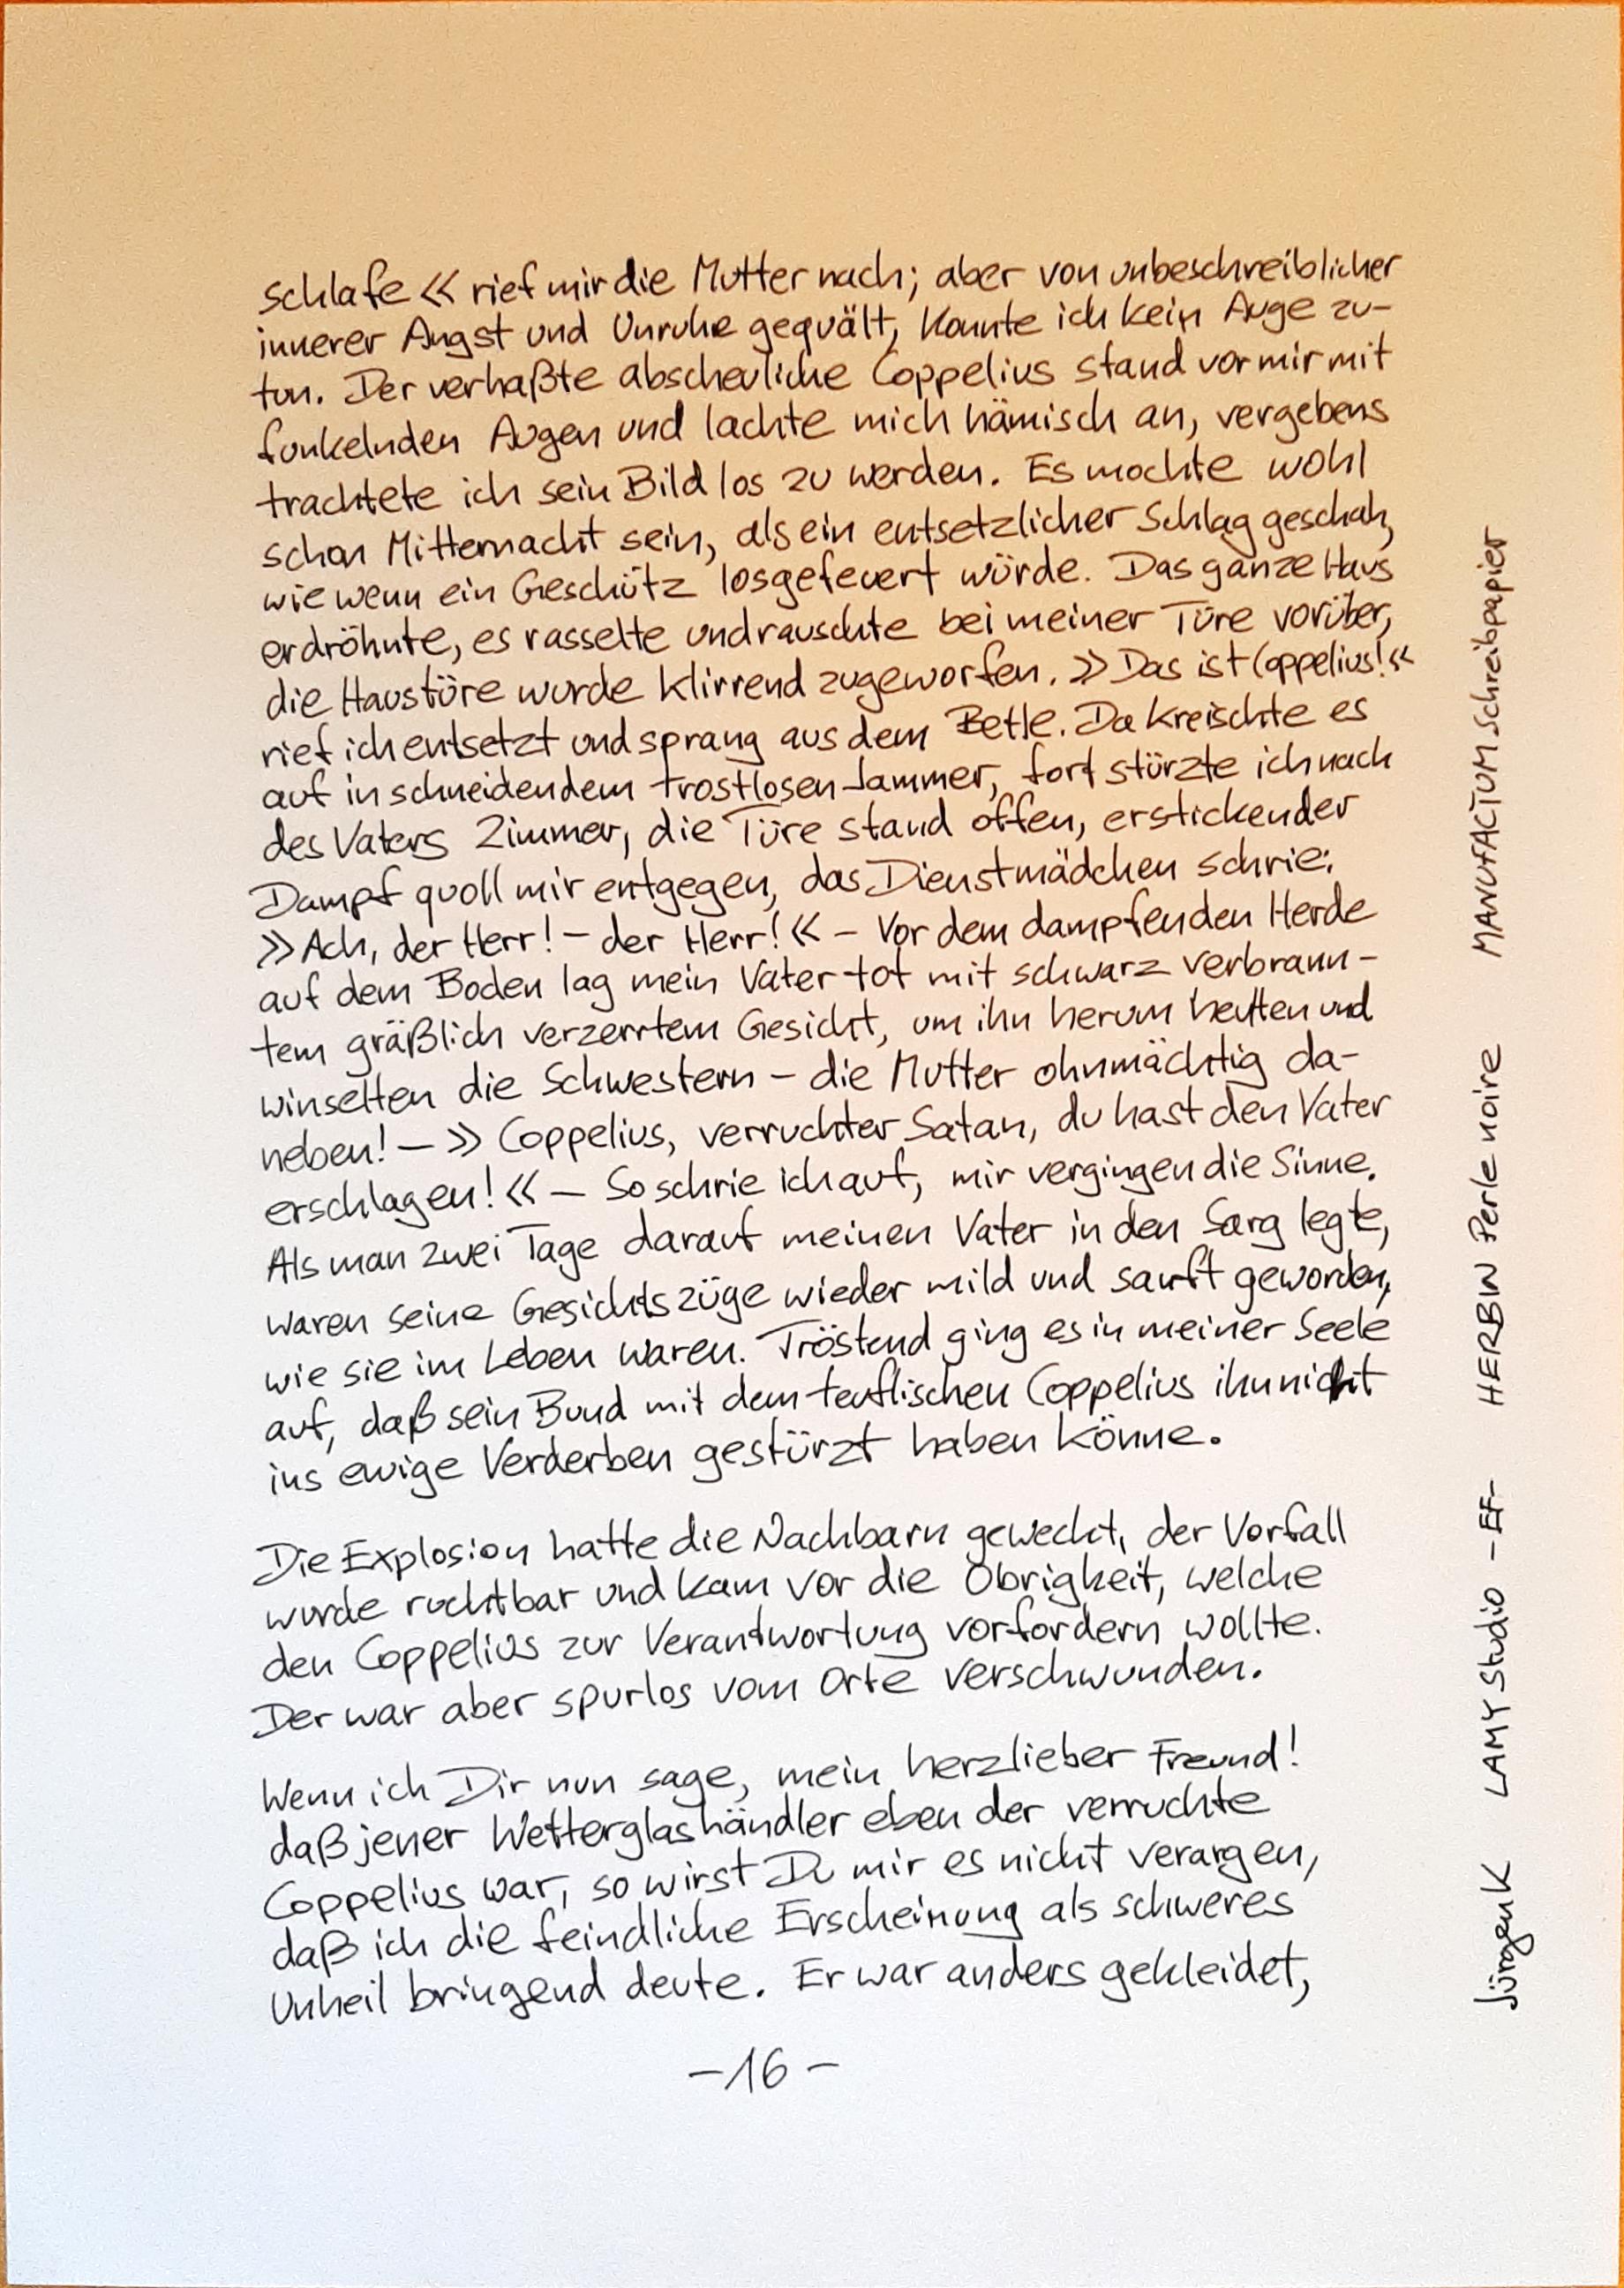 schlafe« rief mir die Mutter nach; aber von unbeschreiblicher
innerer Angst und Unruhe gequält, konnte ich kein Auge zu-
tun. Der verhaßte abscheuliche Coppelius stand vor mir mit
funkelnden Augen und lachte mich hämisch an, vergebens
trachtete ich sein Bild los zu werden. Es mochte wohl
schon Mitternacht sein, als ein entsetzlicher Schlag geschah,
wie wenn ein Geschütz losgefeuert würde. Das ganze Haus
erdröhnte, es rasselte und rauschte bei meiner Türe vorüber,
die Haustüre wurde klirrend zugeworfen. »Das ist Coppelius!«
rief ich entsetzt und sprang aus dem Bette. Da kreischte es
auf in schneidendem trostlosen Jammer, fort stürzte ich nach
des Vaters Zimmer, die Türe stand offen, erstickender
Dampf quoll mir entgegen, das Dienstmädchen schrie:
»Ach, der Herr! – der Herr!« – Vor dem dampfenden Herde
auf dem Boden lag mein Vater tot mit schwarz verbrann-
tem gräßlich verzerrtem Gesicht, um ihn herum heulten und
winselten die Schwestern – die Mutter ohnmächtig da-
neben! – »Coppelius, verruchter Satan, du hast den Vater
erschlagen!« – So schrie ich auf, mir vergingen die Sinne.
Als man zwei Tage darauf meinen Vater in den Sarg legte,
waren seine Gesichtszüge wieder mild und sanft geworden,
wie sie im Leben waren. Tröstend ging es in meiner Seele
auf, daß sein Bund mit dem teuflischen Coppelius ihn nicht
ins ewige Verderben gestürzt haben könne.
Die Explosion hatte die Nachbarn geweckt, der Vorfall
wurde ruchtbar und kam vor die Obrigkeit, welche
den Coppelius zur Verantwortung vorfordern wollte.
Der war aber spurlos vom Orte verschwunden.
Wenn ich Dir nun sage, mein herzlieber Freund!
daß jener Wetterglashändler eben der verruchte
Coppelius war, so wirst Du mir es nicht verargen,
daß ich die feindliche Erscheinung als schweres
Unheil bringend deute. Er war anders gekleidet,
– 16 –
JürgenK LAMY Studio -EF- HERBIN Perle noire MANUFACTUM Schreibpapier